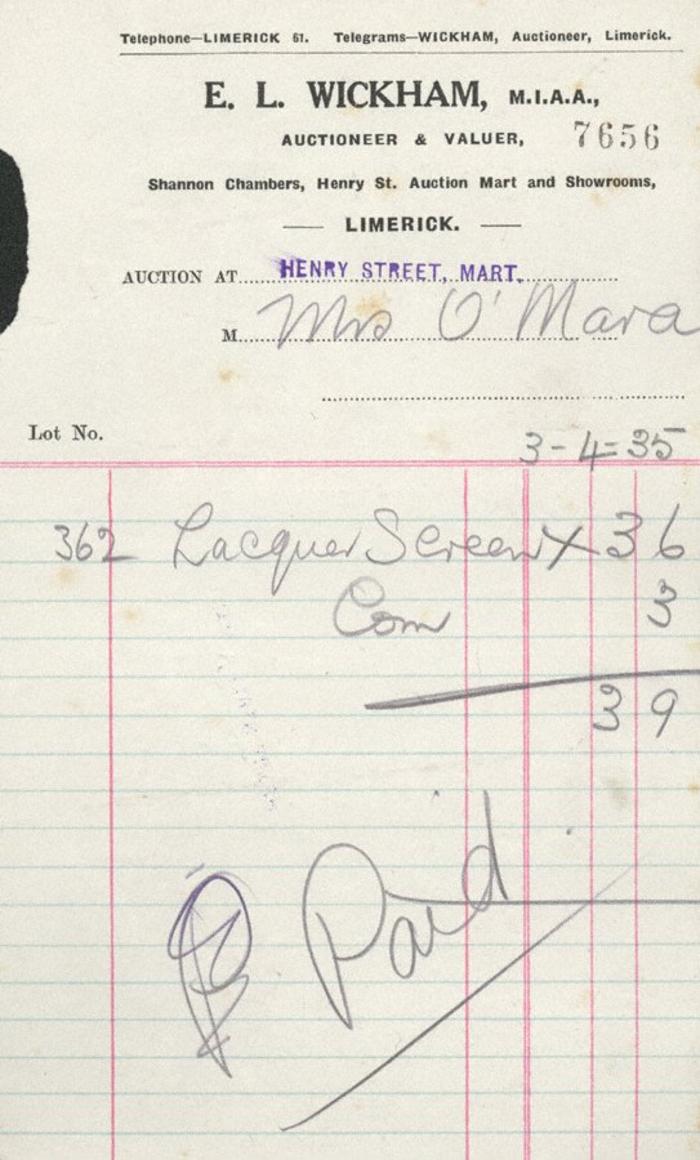 Telephone—LIMERICK 61. Telegrams—WICKHAM, Auctioneer, Limerick.
E. L. WICKHAM, M.I.A.A.,
AUCTIONEER & VALUER, 7656
Shannon Chambers, Henry St. Auction Mart and Showrooms,
— LIMERICK. —
AUCTION AT HENRY STREET, MART.
M Mrs O'Mara
Lot No.
3-4=35
362 Lacquer Screen X 3 6
Com 3
3 9
Paid